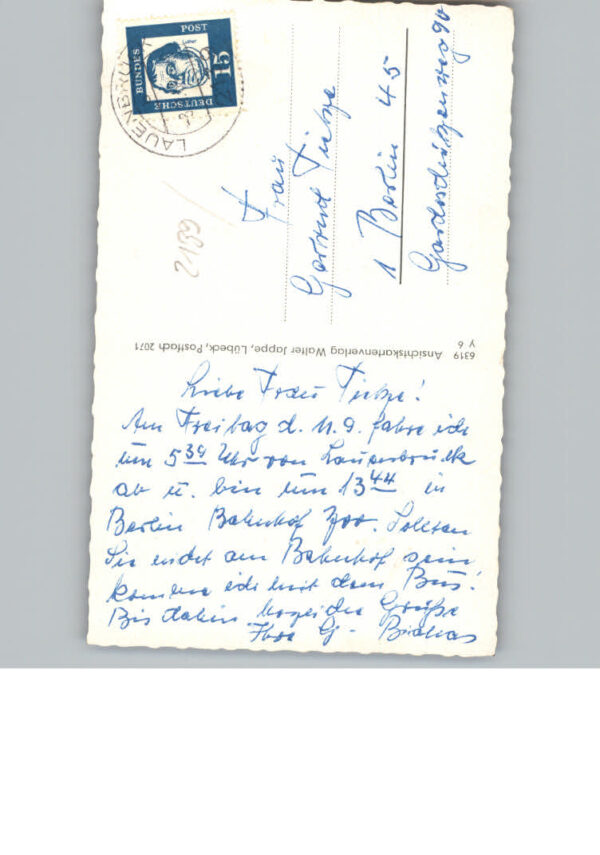 DEUTSCHE
BUNDES
POST
15
Luther
LAUENBRÜCK
Frau
Gertrud Tietze
1 Berlin 45
Gardeschützenweg 90
6319 Ansichtskartenverlag Walter Jappe, Lübeck, Postfach 2071
y 6
Liebe Frau Tietze!
Am Freitag d. 11.9. fahre ich
um 5 39 Uhr von Lauenbrück
ab u. bin um 13 44 in
Berlin Bahnhof Zoo. Sollten
Sie nicht am Bahnhof sein
komme ich mit dem Bus!
Bis dahin herzliche Grüße
Ihre G.